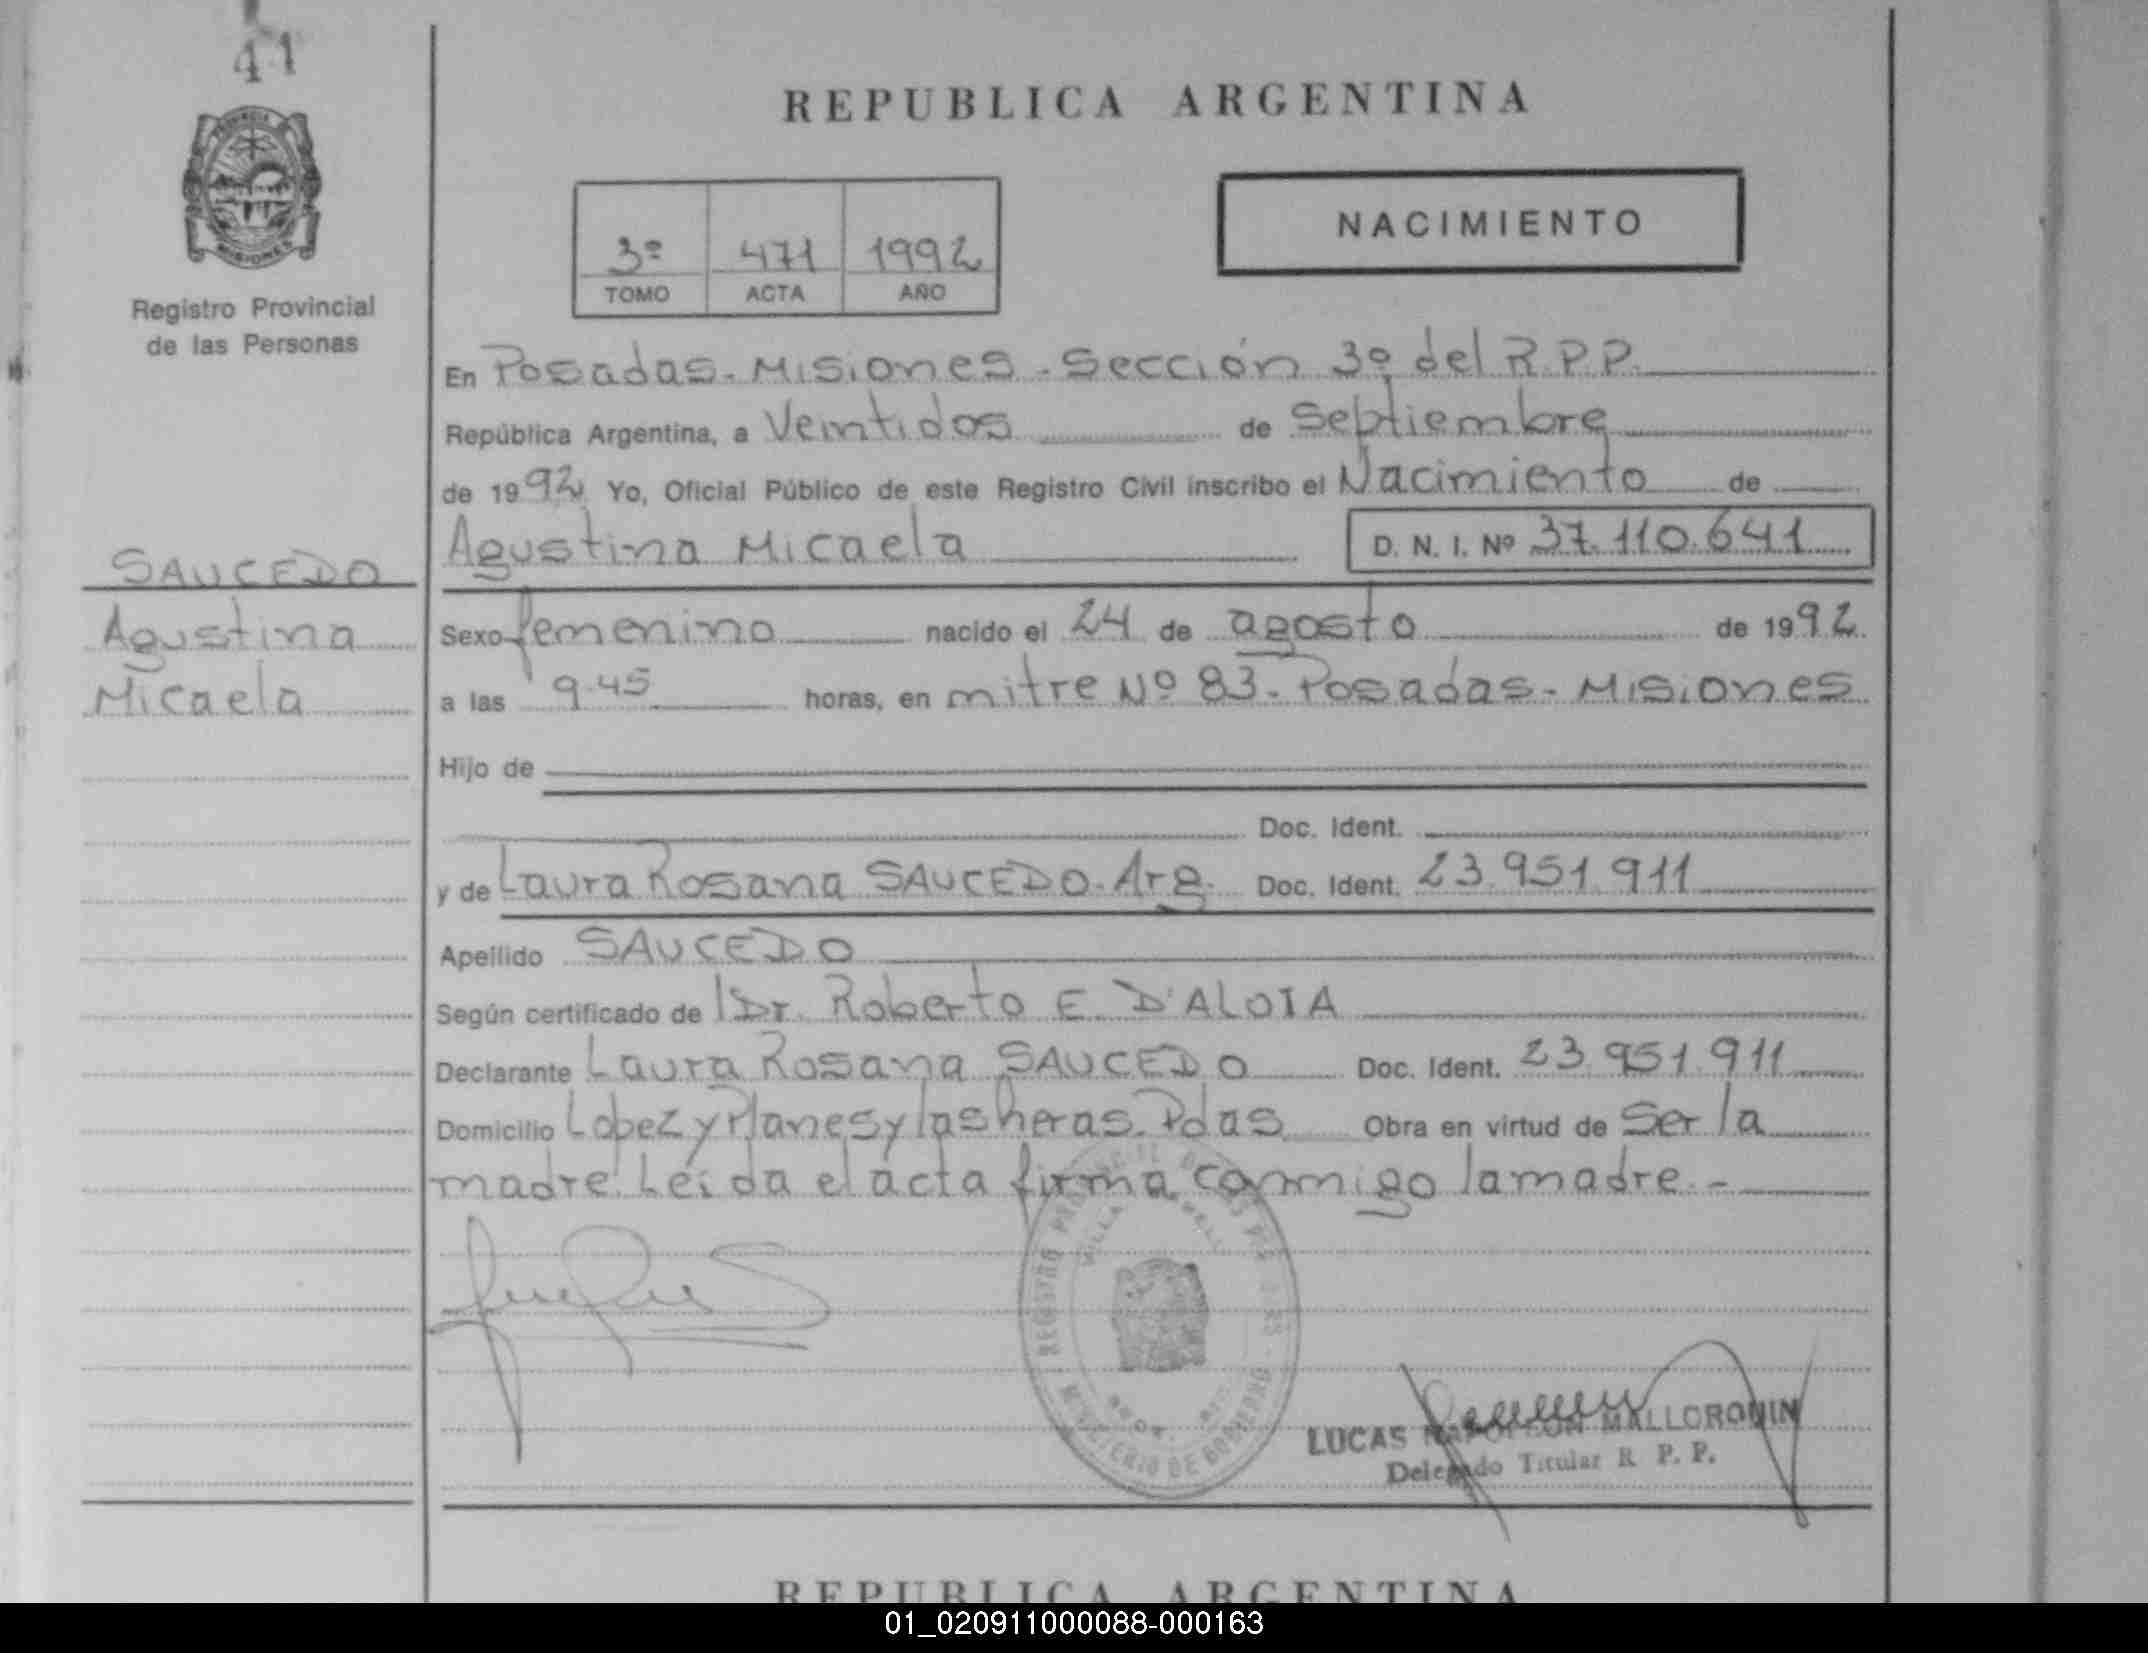 41
REPUBLICA ARGENTINA
PROVINCIA
MISIONES
Registro Provincial
de las Personas
3º 471 1992
TOMO ACTA AÑO
NACIMIENTO
En Posadas - Misiones - Sección 3º del R.P.P.
República Argentina, a Veintidos de Septiembre
de 1992 Yo, Oficial Público de este Registro Civil inscribo el Nacimiento de
Agustina Micaela D. N. I. Nº 37.110.641
SAUCEDO
Agustina
Micaela
Sexo femenino nacido el 24 de agosto de 1992
a las 9.45 horas, en mitre Nº 83 - Posadas - Misiones
Hijo de
Doc. Ident.
y de Laura Rosana SAUCEDO - Arg. Doc. Ident. 23.951.911
Apellido SAUCEDO
Según certificado de Dr. Roberto E. D'ALOIA
Declarante Laura Rosana SAUCEDO Doc. Ident. 23.951.911
Domicilio Lopez y Planes y las heras. Pdas Obra en virtud de Ser la
madre. Leída el acta firma conmigo la madre. -
REGISTRO
MINISTERIO DE GOBIERNO
LUCAS NAPOLEON MALLORQUIN
Delegado Titular R. P. P.
REPUBLICA ARGENTINA
01_020911000088-000163